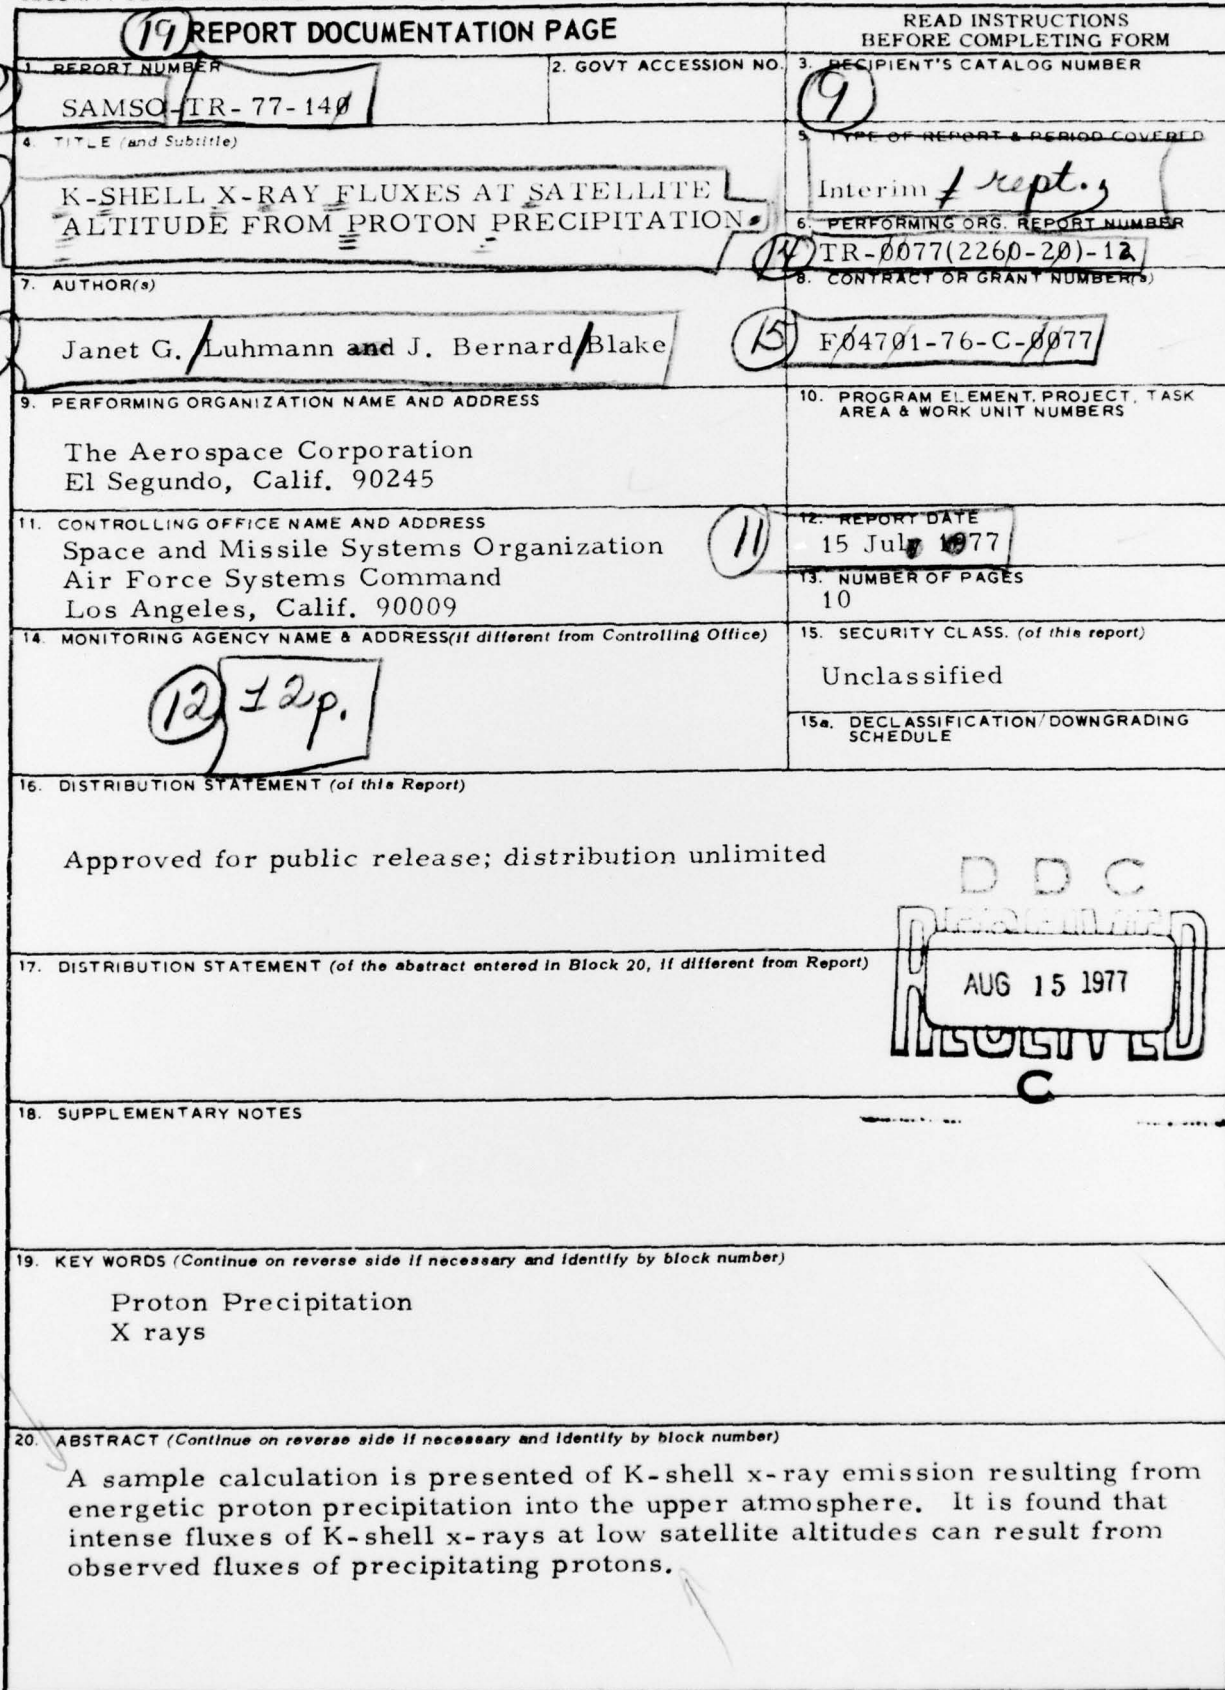 (19) REPORT DOCUMENTATION PAGE
READ INSTRUCTIONS
BEFORE COMPLETING FORM
1. REPORT NUMBER
SAMSO-TR-77-140
2. GOVT ACCESSION NO.
3. RECIPIENT'S CATALOG NUMBER
(9)
4. TITLE (and Subtitle)
K-SHELL X-RAY FLUXES AT SATELLITE
ALTITUDE FROM PROTON PRECIPITATION.
5. TYPE OF REPORT & PERIOD COVERED
Interim rept.,
6. PERFORMING ORG. REPORT NUMBER
(14) TR-0077(2260-20)-12
7. AUTHOR(s)
Janet G. / Luhmann and J. Bernard / Blake
8. CONTRACT OR GRANT NUMBER(s)
(15) F04701-76-C-0077
9. PERFORMING ORGANIZATION NAME AND ADDRESS
The Aerospace Corporation
El Segundo, Calif. 90245
10. PROGRAM ELEMENT, PROJECT, TASK
AREA & WORK UNIT NUMBERS
11. CONTROLLING OFFICE NAME AND ADDRESS
Space and Missile Systems Organization
Air Force Systems Command
Los Angeles, Calif. 90009
12. REPORT DATE
(11) 15 July 1977
13. NUMBER OF PAGES
10
14. MONITORING AGENCY NAME & ADDRESS(if different from Controlling Office)
(12) 12p.
15. SECURITY CLASS. (of this report)
Unclassified
15a. DECLASSIFICATION/DOWNGRADING
SCHEDULE
16. DISTRIBUTION STATEMENT (of this Report)
Approved for public release; distribution unlimited
D D C
AUG 15 1977
RECEIVED
C
17. DISTRIBUTION STATEMENT (of the abstract entered in Block 20, if different from Report)
18. SUPPLEMENTARY NOTES
19. KEY WORDS (Continue on reverse side if necessary and identify by block number)
Proton Precipitation
X rays
20. ABSTRACT (Continue on reverse side if necessary and identify by block number)
A sample calculation is presented of K-shell x-ray emission resulting from
energetic proton precipitation into the upper atmosphere. It is found that
intense fluxes of K-shell x-rays at low satellite altitudes can result from
observed fluxes of precipitating protons.